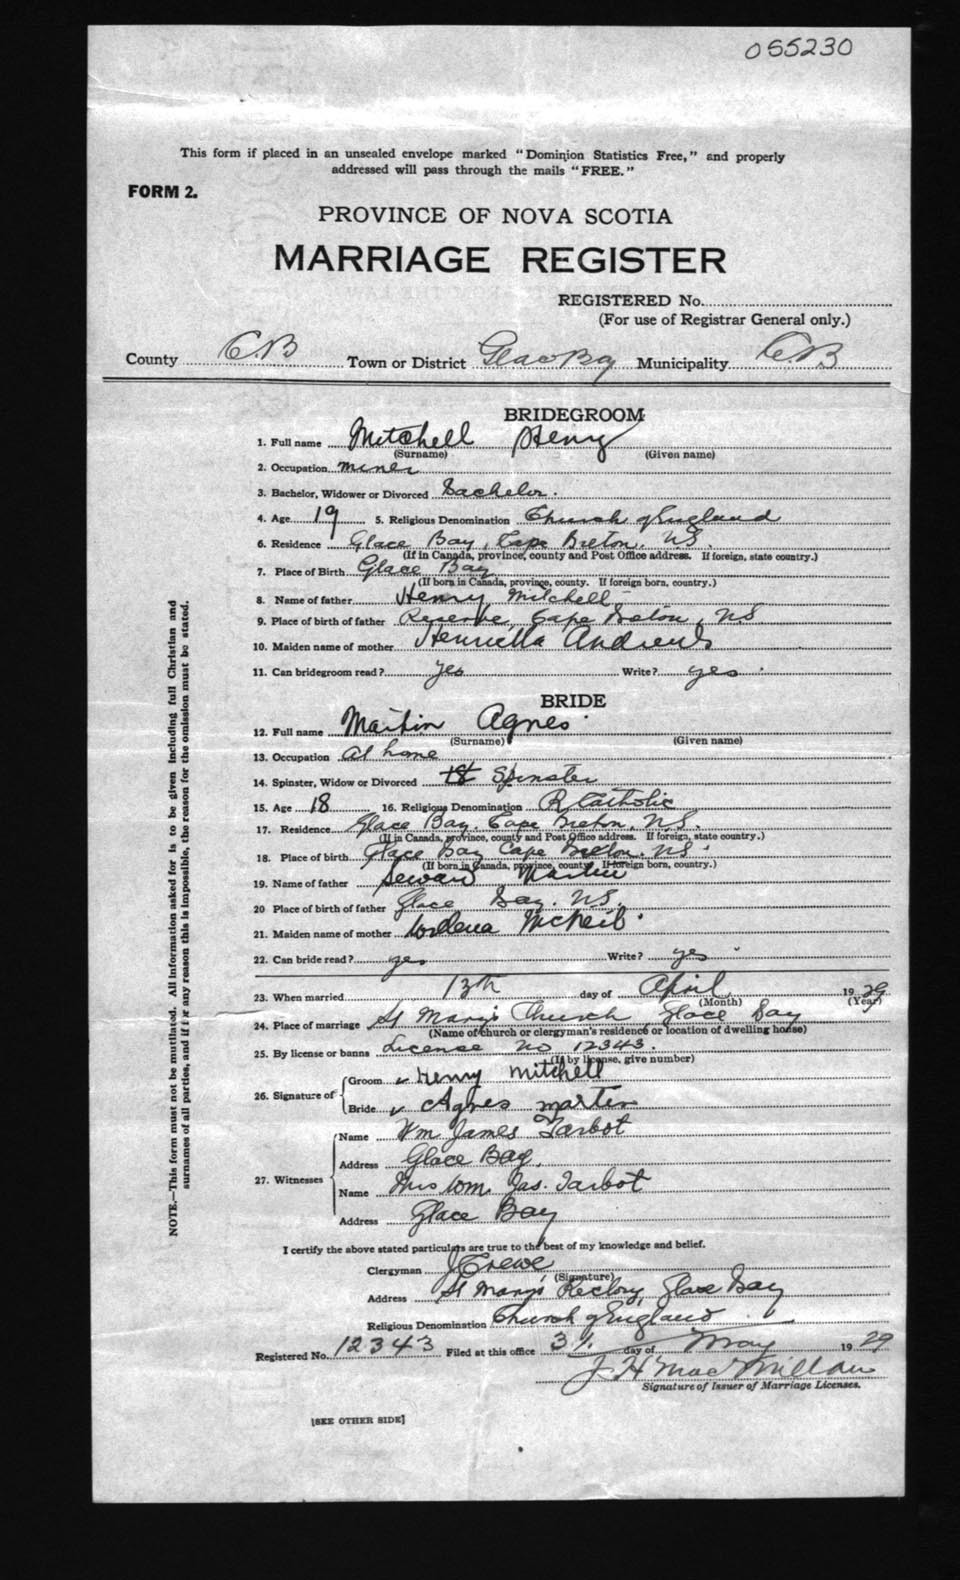 055230
This form if placed in an unsealed envelope marked "Dominion Statistics Free," and properly
addressed will pass through the mails "FREE."
FORM 2.
PROVINCE OF NOVA SCOTIA
MARRIAGE REGISTER
REGISTERED No.
(For use of Registrar General only.)
County C.B Town or District Glace Bay Municipality C.B
BRIDEGROOM
1. Full name Mitchell Henry
(Surname) (Given name)
2. Occupation miner
3. Bachelor, Widower or Divorced Bachelor.
4. Age 19 5. Religious Denomination Church of England
6. Residence Glace Bay, Cape Breton, N.S.
(If in Canada, province, county and Post Office address. If foreign, state country.)
7. Place of Birth Glace Bay
(If born in Canada, province, county. If foreign born, country.)
8. Name of father Henry Mitchell
9. Place of birth of father Reserve, Cape Breton, N.S
10. Maiden name of mother Henrietta Andrews
11. Can bridegroom read? yes Write? yes
BRIDE
12. Full name Martin Agnes
(Surname) (Given name)
13. Occupation At home
14. Spinster, Widow or Divorced 18 Spinster
15. Age 18 16. Religious Denomination R. Catholic
17. Residence Glace Bay Cape Breton, N.S.
(If in Canada, province, county and Post Office address. If foreign, state country.)
18. Place of birth Glace Bay Cape Breton. N.S.
(If born in Canada, province, county. If foreign born, country.)
19. Name of father Martin
20 Place of birth of father Glace Bay. N.S.
21. Maiden name of mother McNeil
22. Can bride read? yes Write? yes
23. When married 13th day of April 1929
(Month) (Year)
24. Place of marriage St Mary's Church Glace Bay
(Name of church or clergyman's residence or location of dwelling house)
25. By license or banns License no 12343.
(If by license, give number)
26. Signature of
Groom Henry Mitchell
Bride Agnes Marten
27. Witnesses
Name Wm James Tarbot
Address Glace Bay.
Name Mrs Wm. Jas. Tarbot
Address Glace Bay
I certify the above stated particulars are true to the best of my knowledge and belief.
Clergyman J Crewe
(Signature)
Address St Mary's Rectory, Glace Bay
Religious Denomination Church of England
Registered No. 12343 Filed at this office 31 day of May 1929
J. H. MacMillan
Signature of Issuer of Marriage Licenses.
[SEE OTHER SIDE]
NOTE.—This form must not be mutilated. All information asked for is to be given including full Christian and
surnames of all parties, and if for any reason this is impossible, the reason for the omission must be stated.